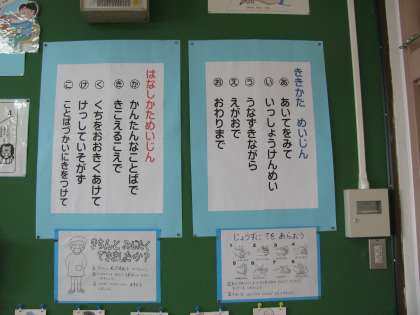 ききかた めいじん
あ あいてをみて
い いっしょうけんめい
う うなずきながら
え えがおで
お おわりまで
はなしかためいじん
か かんたんなことばで
き きこえるこえで
く くちをおおきくあけて
け けっしていそがず
こ ことばづかいにきをつけて
じょうずに てを あらおう
きちんと
できましたか?